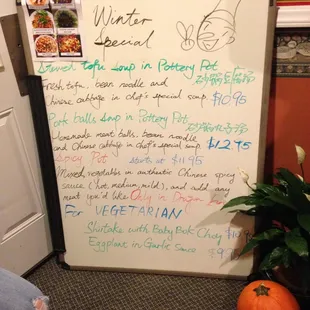 Winter
Special
Stewed tofu soup in Pottery Pot
砂鍋豆腐
Fresh tofu, bean noodle and
Chinese cabbage in chef's special soup $10.95
Pork balls Soup in Pottery Pot
砂鍋丸子
Homemade meat balls, bean noodle
and Chinese cabbage in chef's special soup $12.95
Spicy Pot starts at $11.95
Mixed vegetables in authentic Chinese spicy
sauce (hot, medium, mild), and add any
meat you'd like Only in Dragon
For VEGETARIAN
Shiitake with Baby Bok Choy $10
Eggplant in Garlic Sauce $9